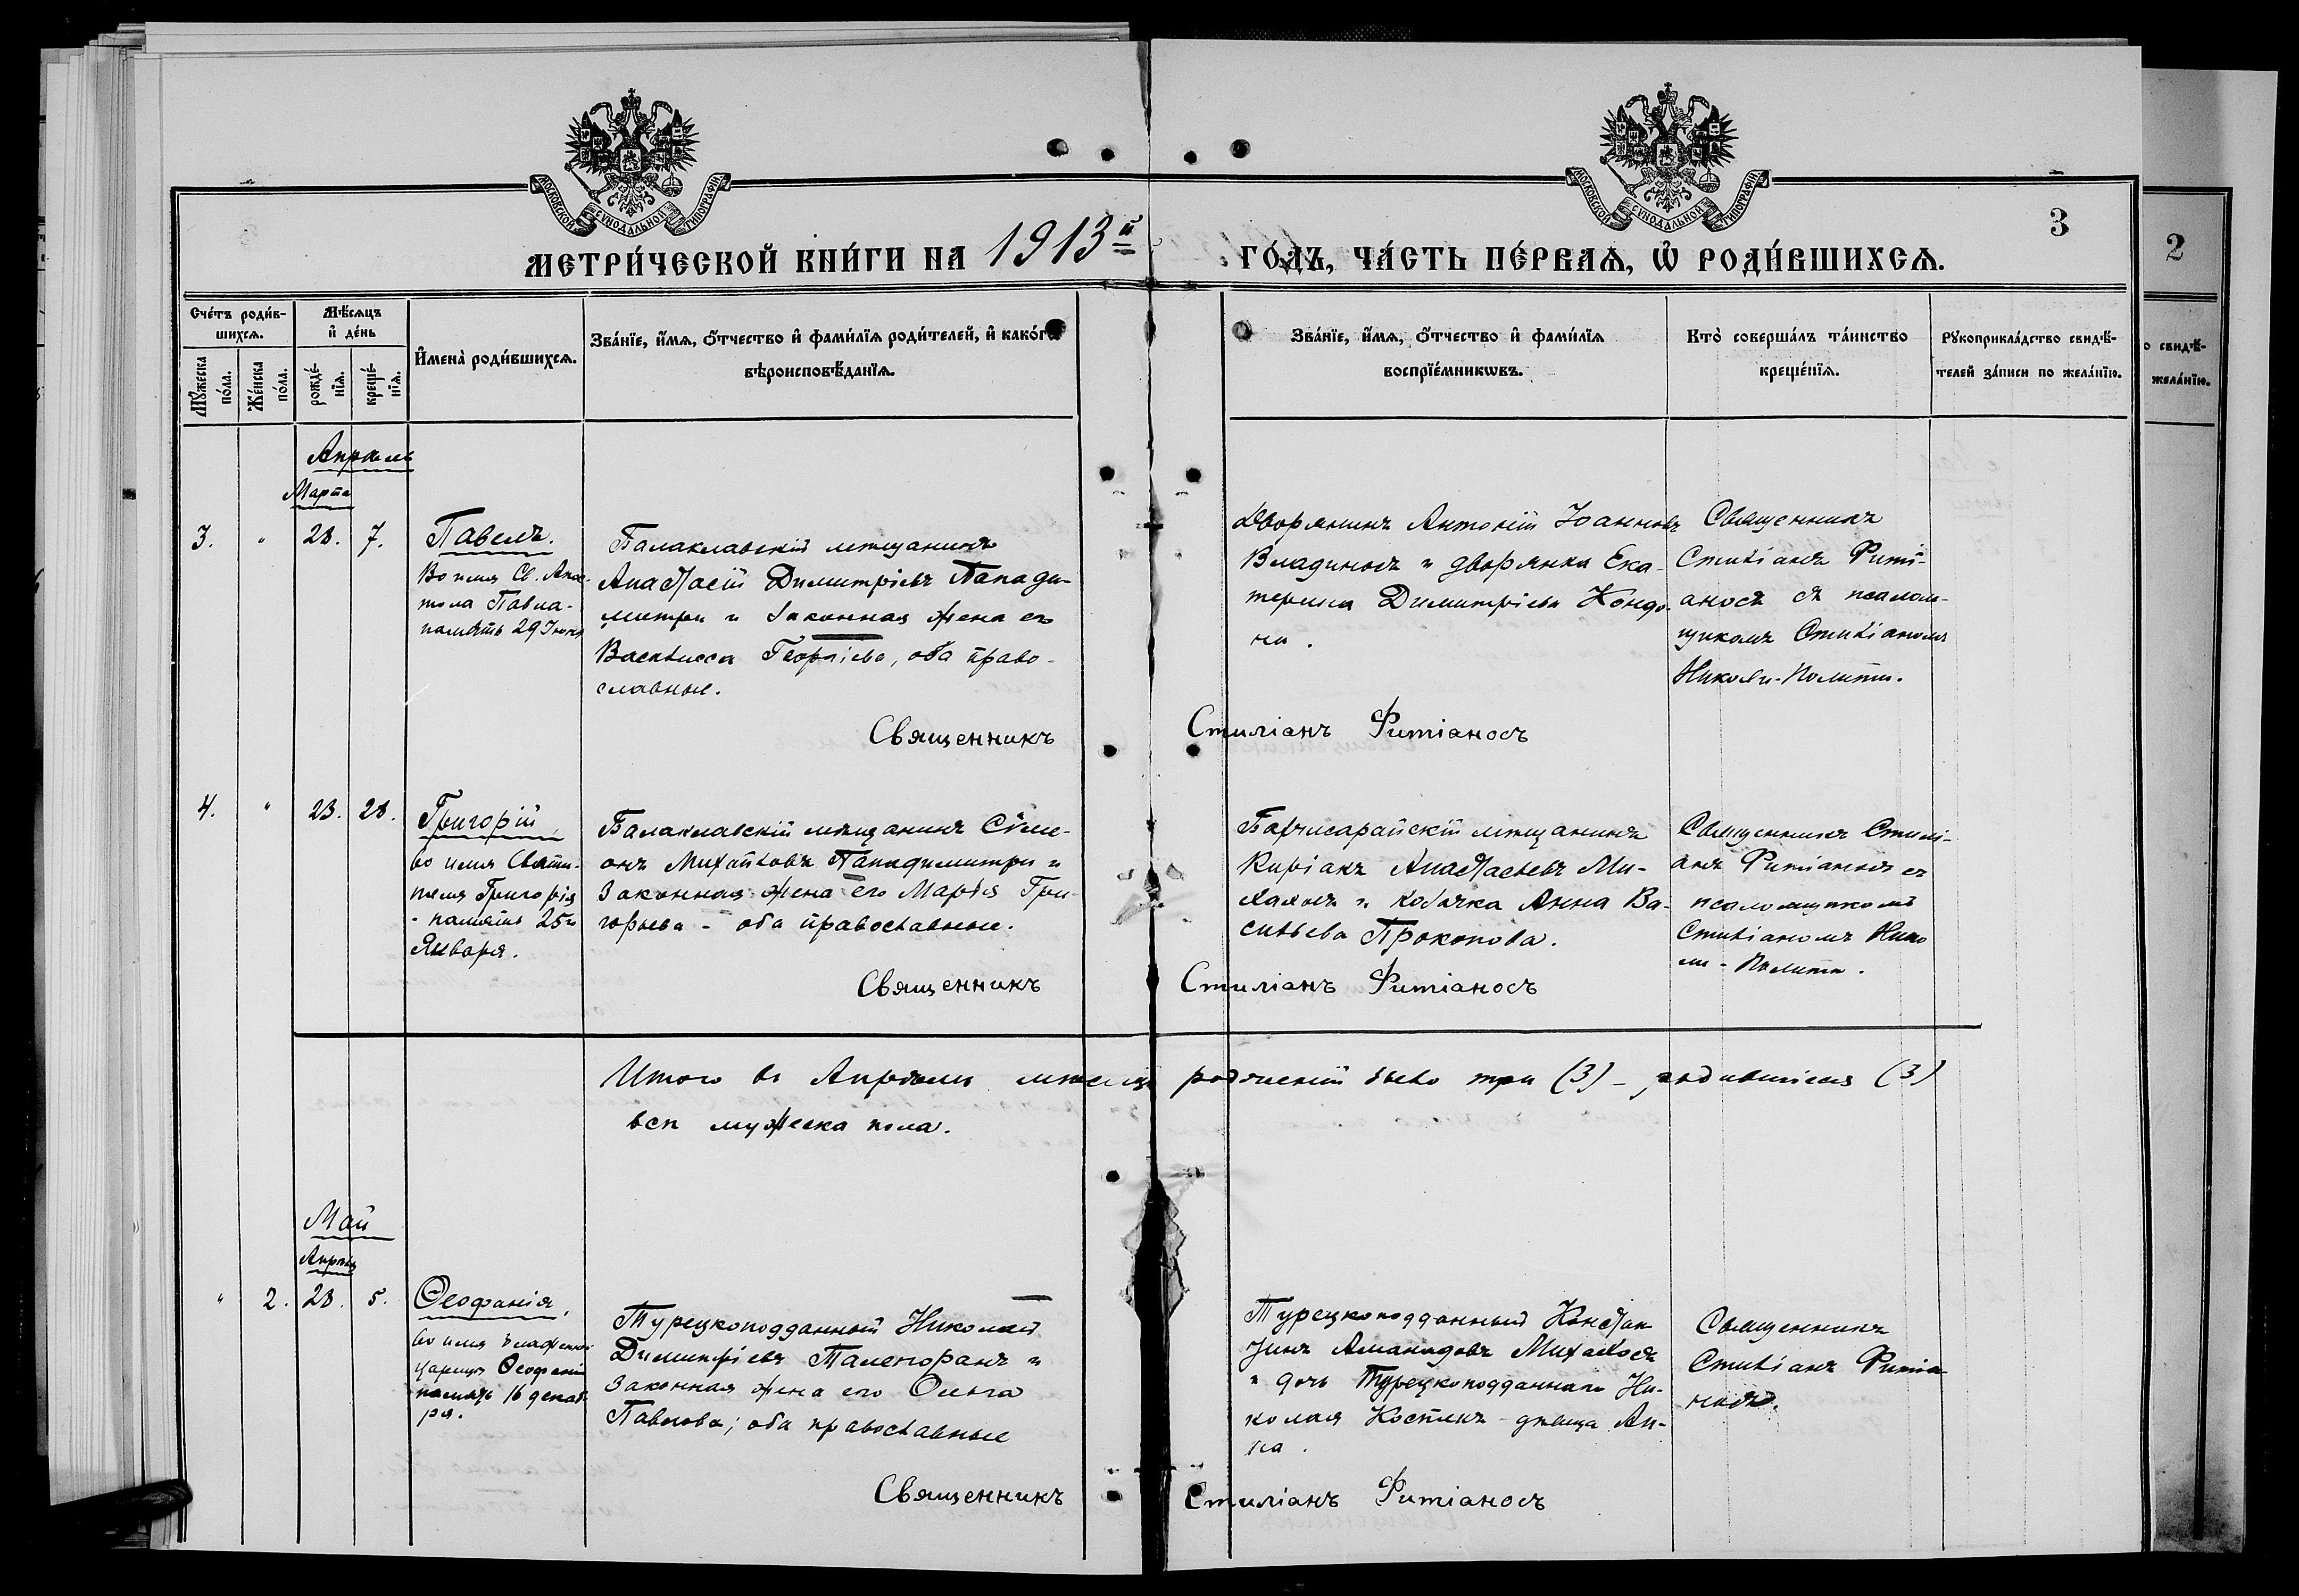 МОСКОВСКОЙ СѴНОДАЛЬНОЙ ТИПОГРАФІИ
МОСКОВСКОЙ СѴНОДАЛЬНОЙ ТИПОГРАФІИ
3
2
МЕТРИ́ЧЕСКОЙ КНИ́ГИ НА 1913й
ГО́ДЪ, ЧА́СТЬ ПЕ́РВАѦ, Ѡ҆ РОДИ́ВШИХСѦ.
Сче́тъ роди́в-
шихсѧ.
Мѣ́сѧцъ
и҆ де́нь
Мꙋ́жеска
по́ла.
Же́нска
по́ла.
рожде́-
нїѧ.
креще́-
нїѧ.
И҆мена̀ роди́вшихсѧ.
Зва́нїе, и҆́мѧ, ѻ҆́тчество и҆ фами́лїѧ роди́телей, и҆ како́гѡ
вѣроисповѣ́данїѧ.
Зва́нїе, и҆́мѧ, ѻ҆́тчество и҆ фами́лїѧ
воспрїе́мникѡвъ.
Кто̀ соверша́лъ та́инство
креще́нїѧ.
Рꙋкоприкла́дство свидѣ́-
телей за́писи по жела́нїю.
о свидѣ́-
жела́нїю.
Апрѣль
Марта
3. " 28. 7.
Павелъ.
Во имя Св. Апос-
тола Павла-
память 29 Іюня
Балаклавскій мѣщанинъ
Анастасій Димитріевъ Папади-
митри и законная жена его
Василисса Георгіева, оба право-
славные.
Дворянинъ Антоній Іоанновъ
Владиносъ и дворянка Ека-
терина Димитріева Кондо-
ни.
Священникъ
Стиліанъ Фиті-
аносъ съ псалом-
щикомъ Стиліаномъ
Николи-Полити.
Священникъ Стиліанъ Фитіаносъ
4. " 23. 28.
Григорій,
во имя Святи-
теля Григорія
- память 25го
Января.
Балаклавскій мѣщанинъ Сѵме-
онъ Михайловъ Пападимитри и
законная жена его Марія Гри-
горьева - оба православные.
Бахчисарайскій мѣщанинъ
Киріакъ Анастасьевъ Ми-
халосъ и казачка Анна Ва-
сильева Прокопова.
Священникъ Стилі-
анъ Фитіаносъ съ
псаломщикомъ
Стиліаномъ Нико
ли - Полити.
Священникъ Стиліанъ Фитіаносъ
Итого въ Апрѣлѣ мѣсяцѣ рожденій было три (3) - родившихся (3)
всѣ мужеска пола.
Май
Апрѣль
" 2. 28. 5.
Ѳеофанія,
во имя блаженной
царицы Ѳеофаніи
память 16 декаб-
ря.
Турецкоподданный Николай
Димитріевъ Таленоранъ и
законная жена его Ольга
Павлова; оба православные
Турецкоподданный Констан
тинъ Михалосъ
и дочь Турецкоподданнаго Ни-
колая Костикъ - дѣвица Ан-
на.
Священникъ
Стиліанъ Фитіа-
носъ.
Священникъ Стиліанъ Фитіаносъ